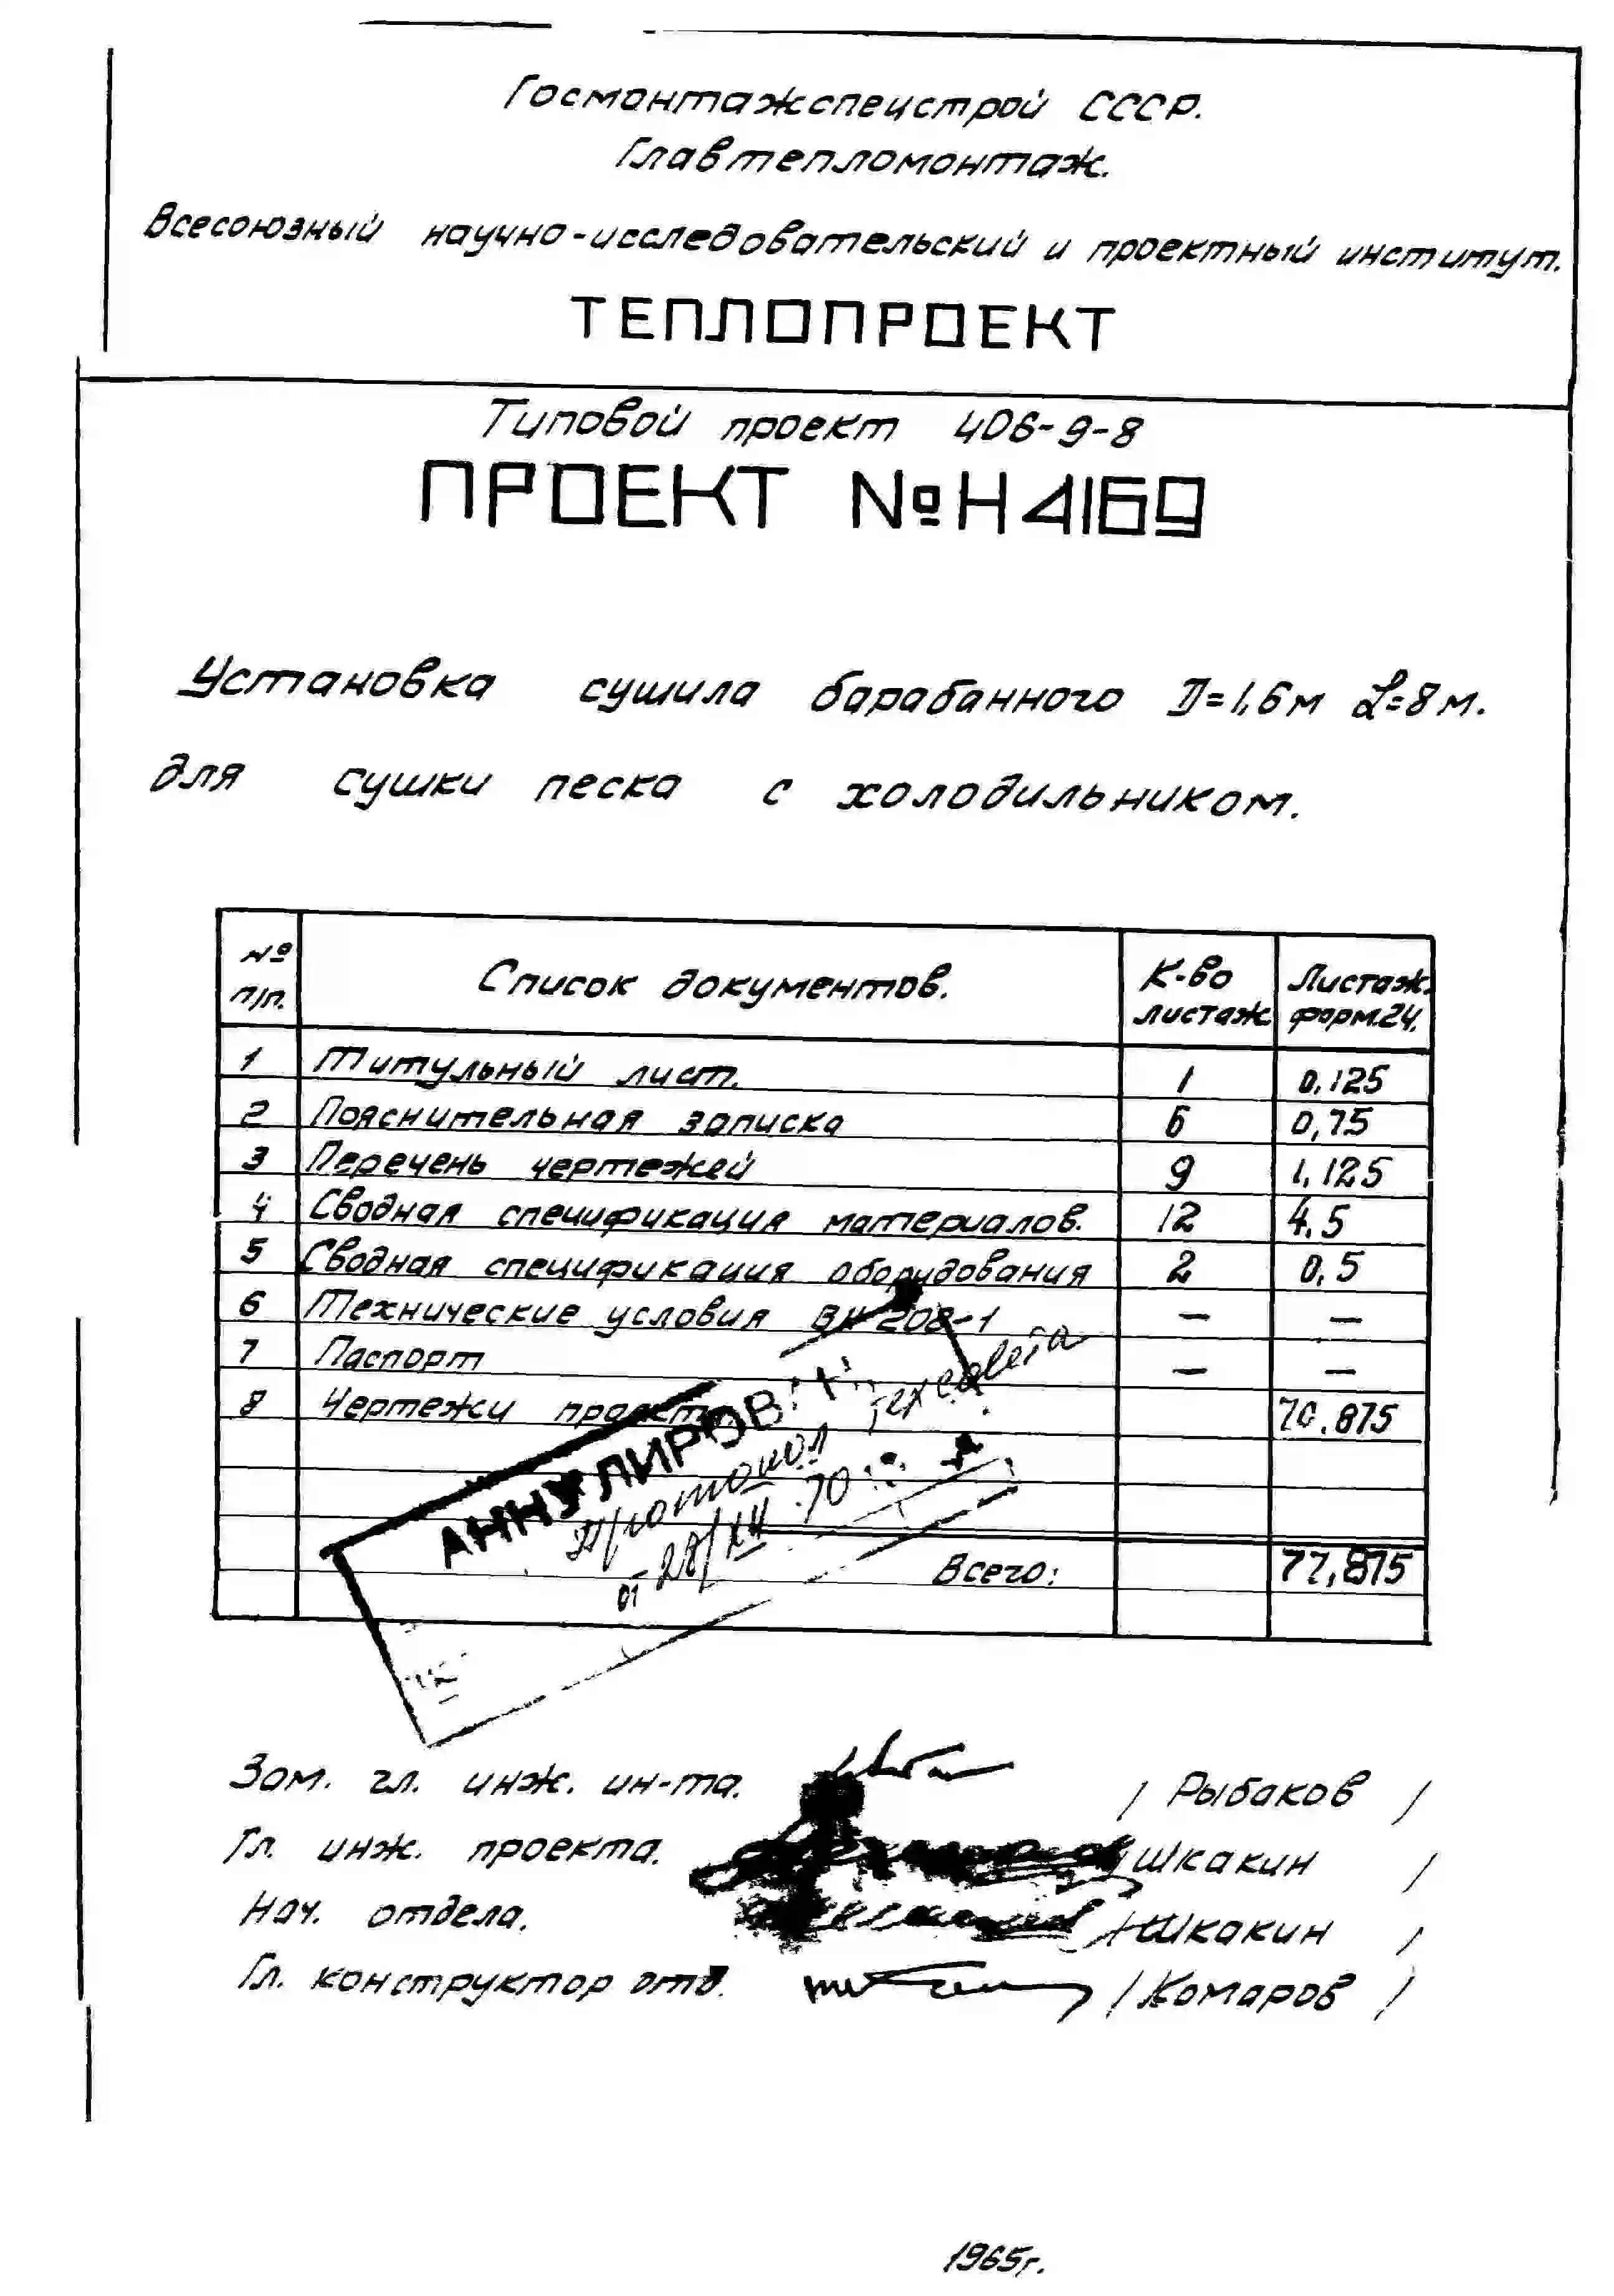 Госмонтажспецстрой СССР.
Главтепломонтаж.
Всесоюзный научно-исследовательский и проектный институт.
ТЕПЛОПРОЕКТ
Типовой проект 406-9-8
ПРОЕКТ №Н4169
Установка сушила барабанного D=1,6м L=8м.
для сушки песка с холодильником.
№ п/п. Список документов. К-во листаж Листаж. форм.24.
1 Титульный лист. 1 0,125
2 Пояснительная записка 6 0,75
3 Перечень чертежей 9 1,125
4 Сводная спецификация материалов. 12 4,5
5 Сводная спецификация оборудования 2 0,5
6 Технические условия ВН 208-1 — —
7 Паспорт — —
8 Чертежи проекта 70.875
Всего: 77,875
АННУЛИРОВАН
Протокол Техсовета
от 28/XII.70
Зам. гл. инж. ин-та. / Рыбаков /
Гл. инж. проекта. Шкакин /
Нач. отдела. / Шкакин /
Гл. конструктор отд. / Комаров /
1965г.